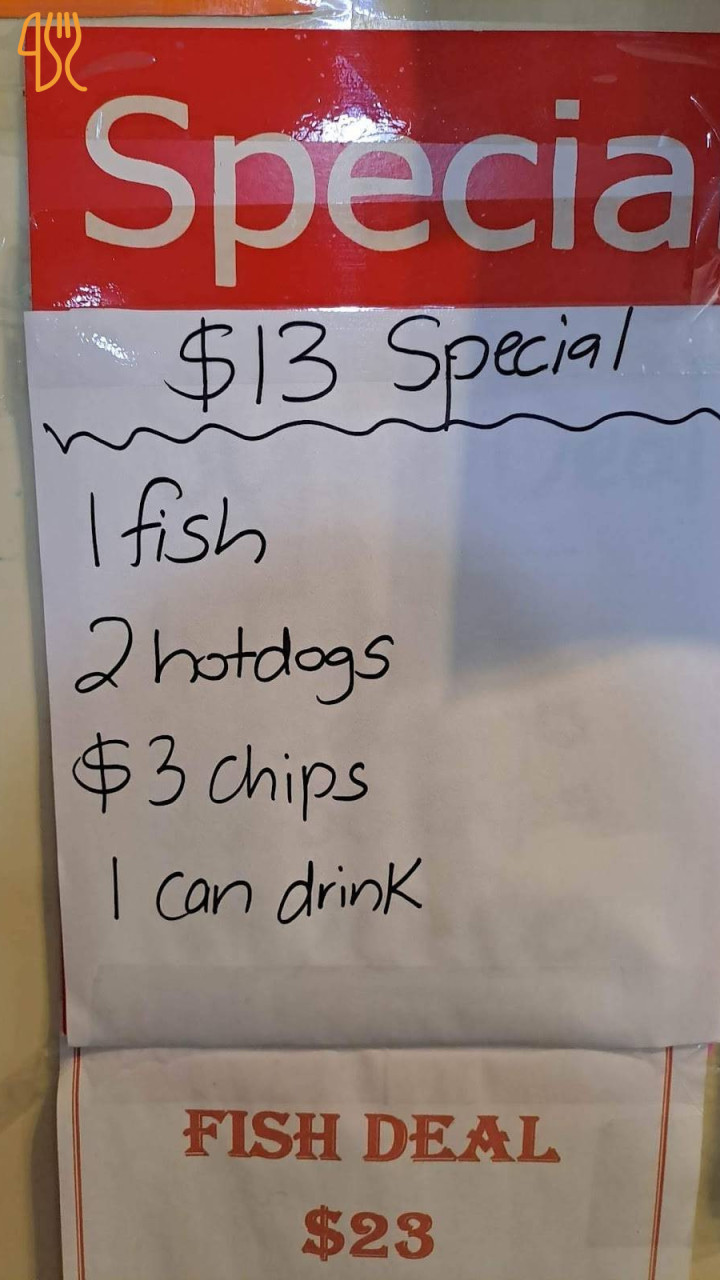 Specia
$13 Special
1 fish
2 hotdogs
$3 chips
1 can drink
FISH DEAL
$23